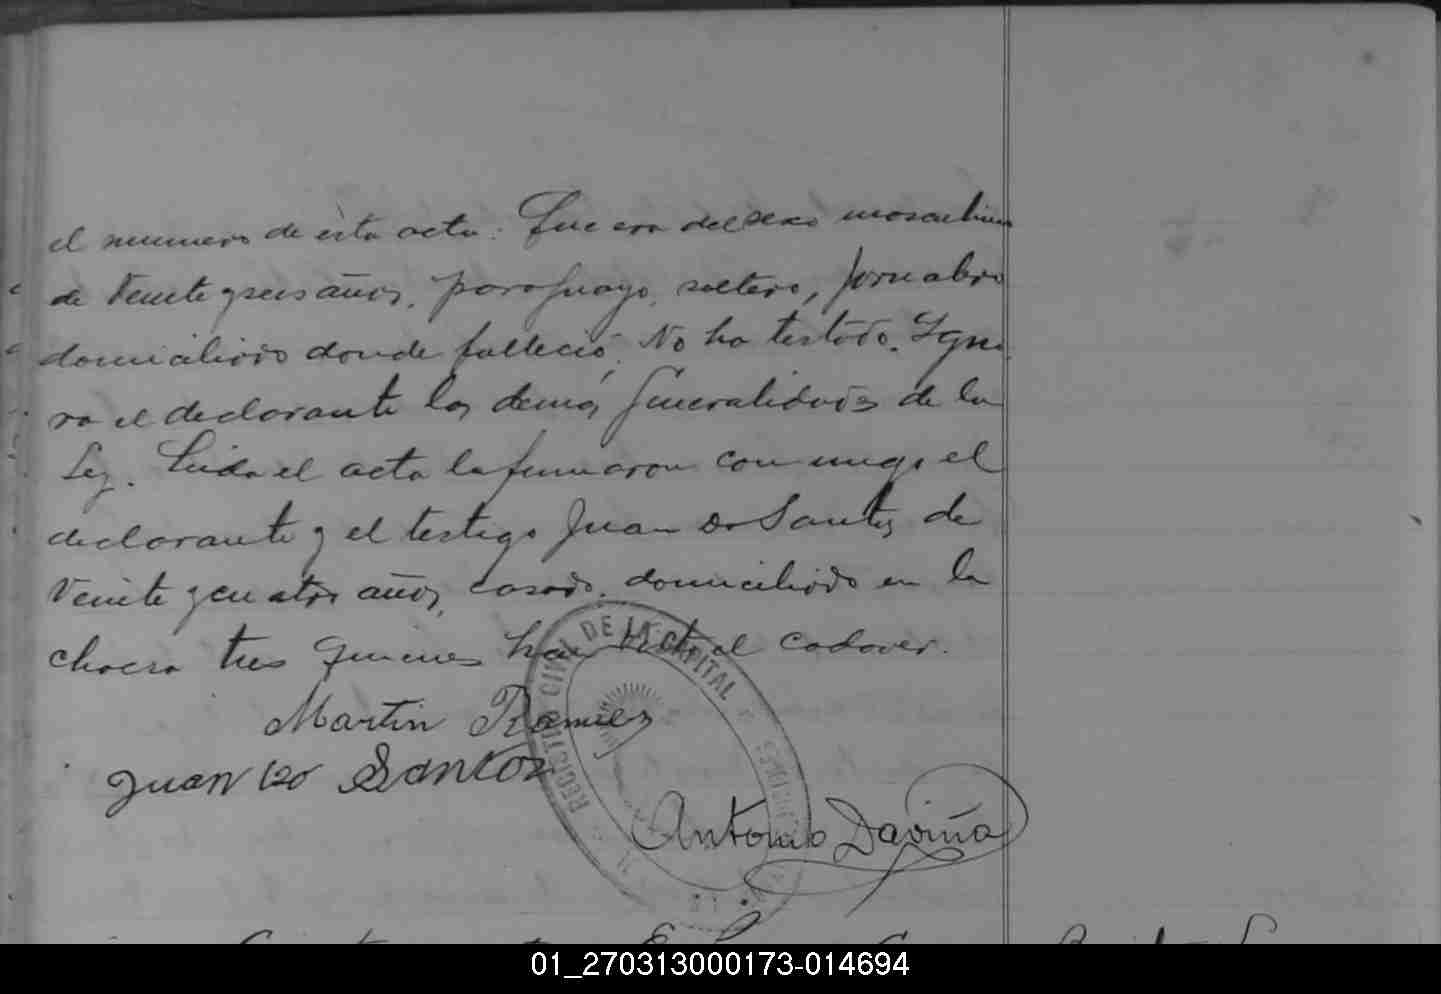 el numero de esta acta. Que era del sexo masculino
de veinte y seis años, paraguayo, soltero, jornalero
domiciliado donde falleció. No ha testado. Igno
ra el declarante las demás generalidades de la
Ley. Leida el acta la firmaron con migo el
declarante y el testigo Juan do Santos de
veinte y cuatro años, casado, domiciliado en la
chacra tres quienes han visto el cadaver.
Martin Ramirez
Juan do Santos
Antonio Daviña
REGISTRO CIVIL DE LA CAPITAL
01_270313000173-014694